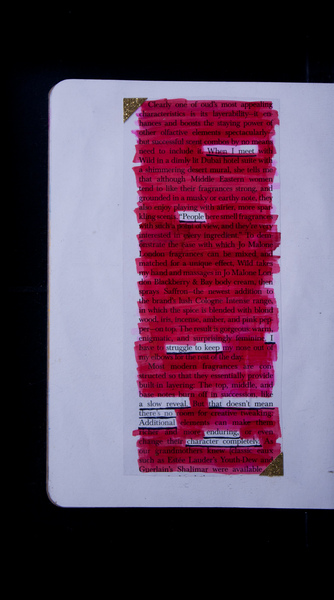 Clearly one of oud's most appealing
characteristics is its layerability: it en-
hances and boosts the staying power of
other olfactive elements spectacularly
but successful most sombre by no means
need to include it. When I meet
Wild in a dimly lit Dubai hotel suite with
a shimmering desert mural, she tells me
that although Middle Eastern women
tend to like their fragrances strong, and
grounded in a musky or earthy note, they
also enjoy playing with airier, more spar-
kling scents. "People here smell fragrances
with such a point of view, and they're very
interested in every ingredient." To dem-
onstrate the ease with which Jo Malone
London fragrances can be mixed and
matched for a unique effect, Wild takes
my hand and massages in Jo Malone Lon-
don Blackberry & Bay body cream, then
sprays Saffron the newest addition to
the brand's lush Cologne Intense range
in which the spice is blended with blond
wood, iris, incense, amber, and pink pep-
per on top. The result is gorgeous warm,
enigmatic, and surprisingly feminine. I
have to struggle to keep my nose out of
my elbows for the rest of the day.
Most modern fragrances are con-
structed so that they essentially provide
built-in layering: The top, middle, and
base notes burn off in succession, like
a slow reveal. But that doesn't mean
there's no room for creative tweaking.
Additional elements can make them
richer and more enduring, or even
change their character completely. As
our grandmothers knew, classic extra
such as Estée Lauder's Youth-Dew and
Guerlain's Shalimar were available